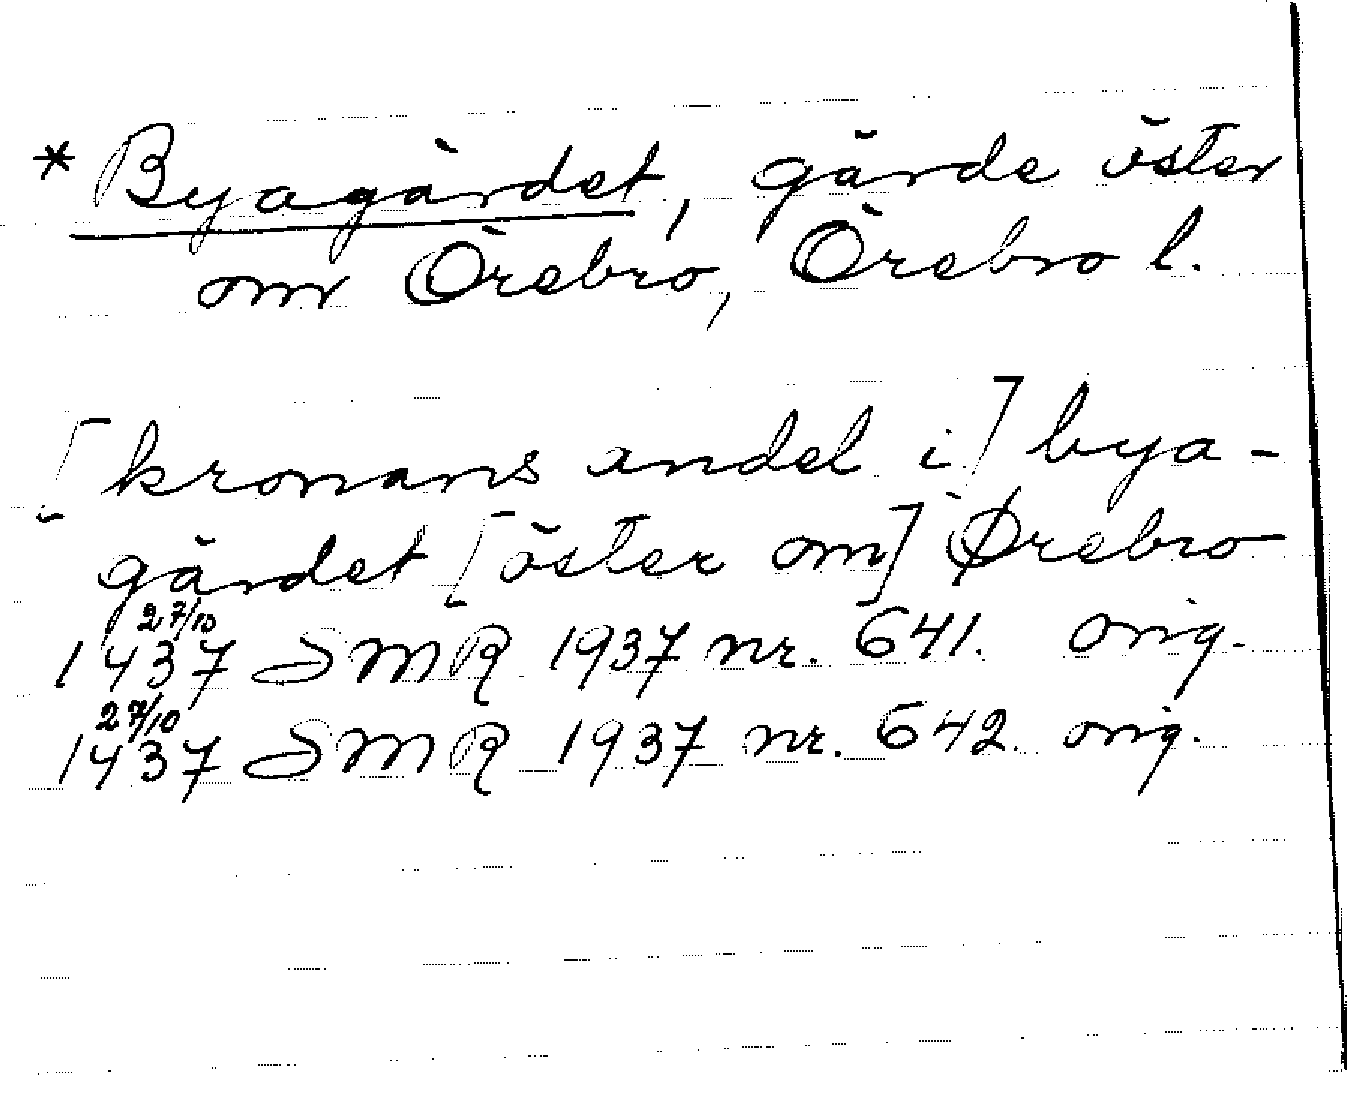 * Byagärdet, gärde öster
om Örebro, Örebro l.
[kronans andel i] bya-
gärdet [öster om] Ørebro
27/10
1437 SMR 1937 nr. 641. orig.
27/10
1437 SMR 1937 nr. 642. orig.